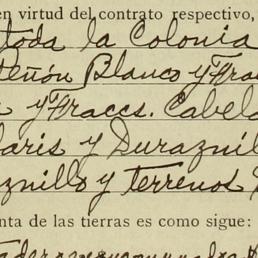 en virtud del contrato respectivo,
toda la Colonia
Peñón Blanco y Frac
y Fraccs. Cabel
laris y Duraznil
znillo y terrenos
nta de las tierras es como sigue: